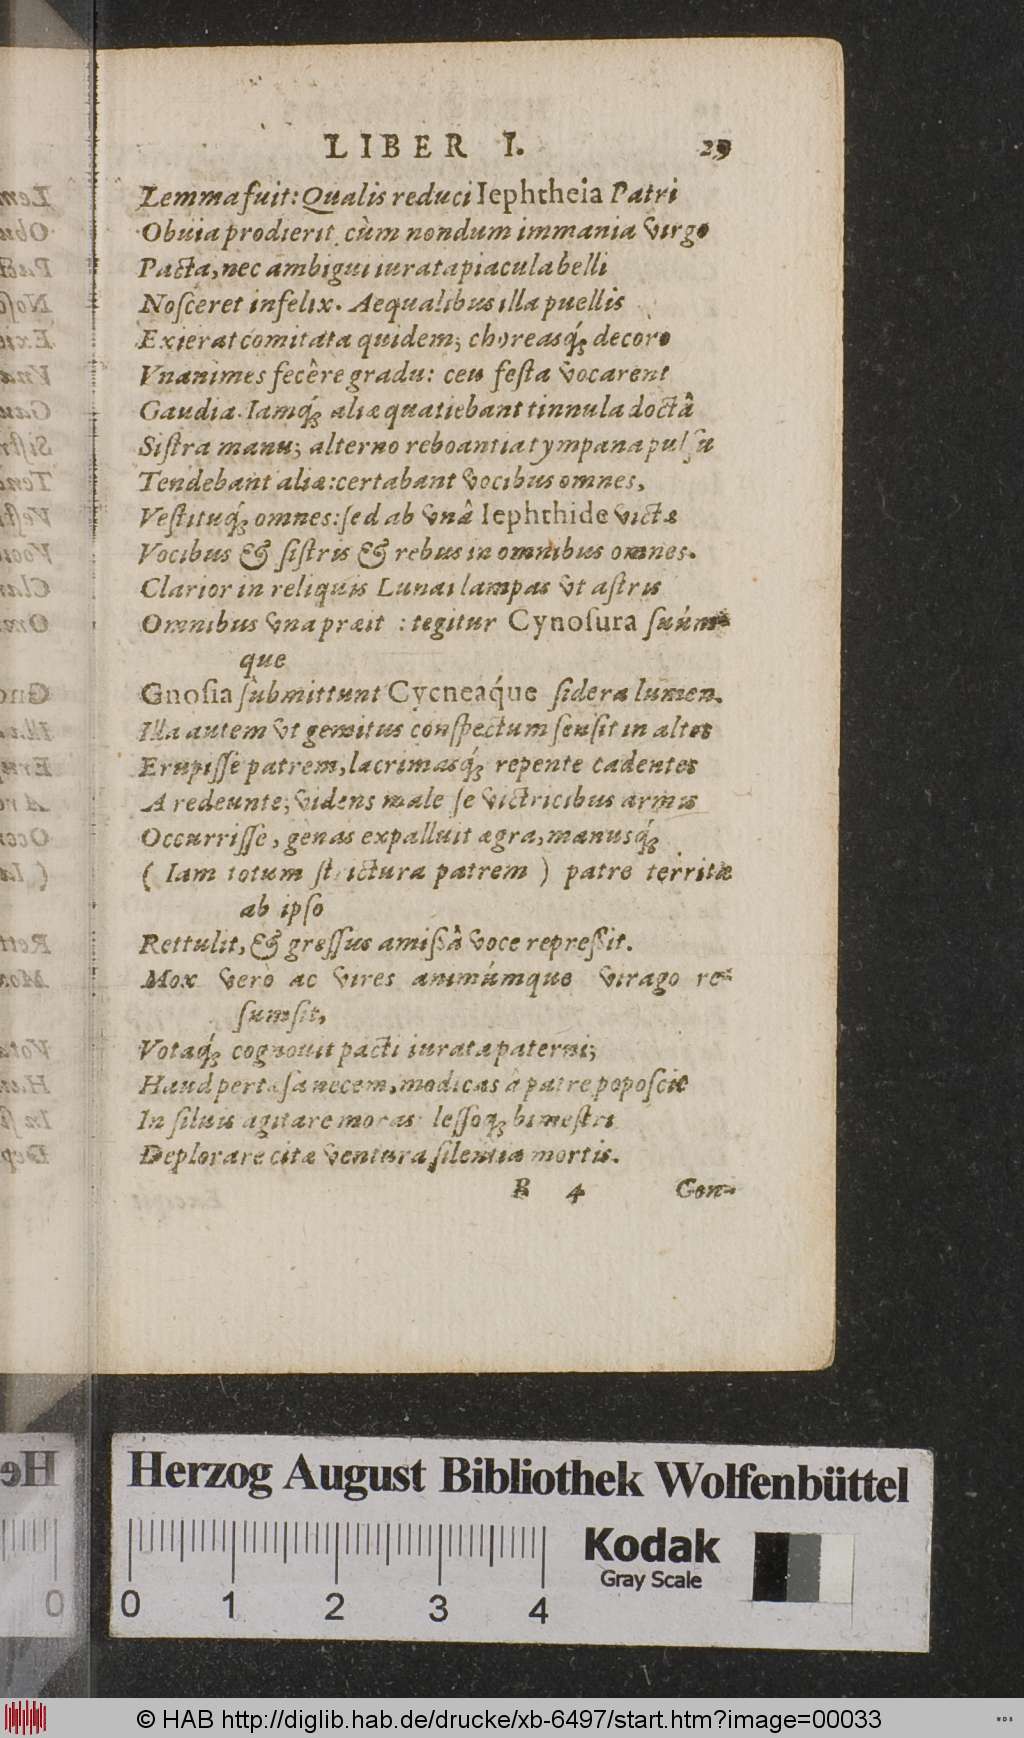 LIBER I. 29
Lemma fuit: Qualis reduci Iephtheia Patri
Obuia prodierit, cùm nondum immania virgo
Pacta, nec ambigui iurata piacula belli
Nosceret infelix. Aequalibus illa puellis
Exierat comitata quidem; choreasq́; decoro
Vnanimes fecêre gradu: ceu festa vocarent
Gaudia. Iamq́; aliæ quatiebant tinnula doctâ
Sistra manu; alterno reboantia tympana pulsu
Tendebant aliæ: certabant vocibus omnes,
Vestituq́; omnes: sed ab vnâ Iephthide victæ
Vocibus & sistris & rebus in omnibus omnes.
Clarior in reliquis Lunai lampas vt astris
Omnibus vna præit : tegitur Cynosura suúm-
que
Gnosia submittunt Cycneáque sidera lumen.
Illa autem vt gemitus conspectum sensit in altos
Erupisse patrem, lacrimasq́; repente cadentes
A redeunte; videns male se victricibus armis
Occurrisse, genas expalluit ægra, manusq́;
( Iam totum strictura patrem ) patre territa
ab ipso
Rettulit, & gressus amissâ voce repressit.
Mox verò ac vires animúmque virago re-
sumsit,
Votaq́; cognouit pacti iurata paterni;
Haud pertæsa necem, modicas à patre poposcit
In siluis agitare moras lessoq; bimestri
Deplorare citæ ventura silentia mortis.
B 4 Gen-
Herzog August Bibliothek Wolfenbüttel
Kodak
Gray Scale
0 1 2 3 4
© HAB http://diglib.hab.de/drucke/xb-6497/start.htm?image=00033